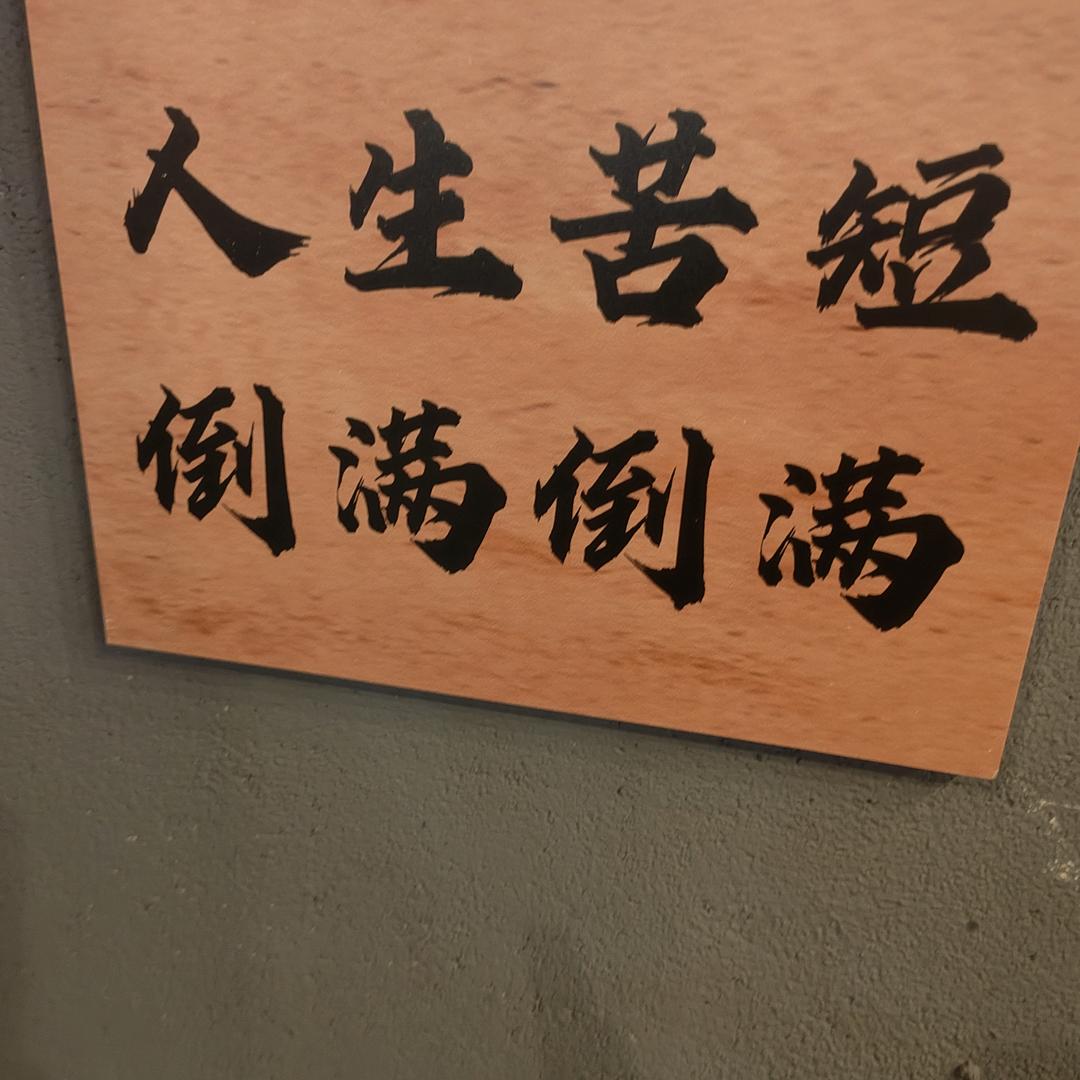 人生苦短
倒满倒满